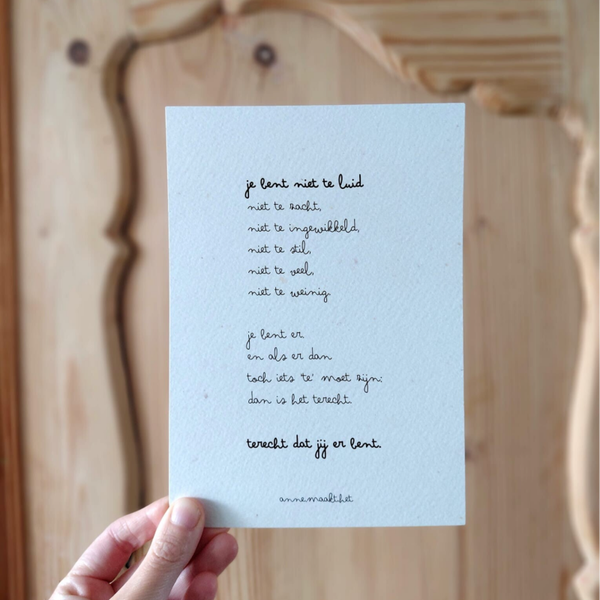 je bent niet te luid
niet te zacht,
niet te ingewikkeld,
niet te stil,
niet te veel,
niet te weinig.
je bent er.
en als er dan
toch iets 'te' moet zijn:
dan is het terecht.
terecht dat jij er bent.
annemaakt.het